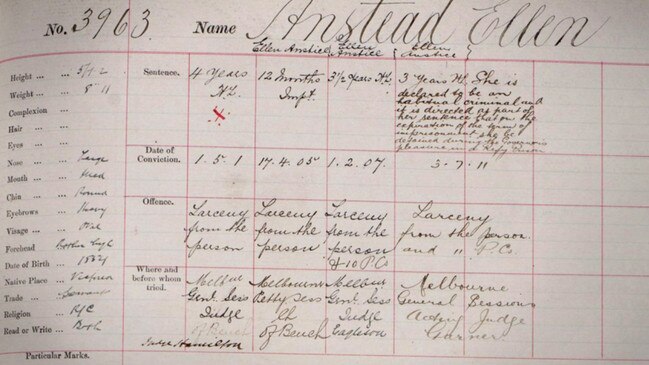 No. 3963 Name Anstead Ellen
Ellen Anstice { Ellen Anstice { Ellen Anstice
Height ... 5/4 2
Weight ... 8 " 11
Complexion ...
Hair ...
Eyes ...
Nose ... Large
Mouth ... Med
Chin ... Round
Eyebrows ... Heavy
Visage ... Oval
Forehead
Date of Birth ...
Native Place ... Victoria
Trade ... Servant
Religion ... R/C
Read or Write ... Both
Particular Marks.
Sentence.
4 Years
HL
12 Months
Impt.
3 1/2 Years HL
3 Years HL. She is
declared to be an
habitual criminal and
it is directed as part of
her sentence that on the
expiration of the term of
imprisonment she be
detained during the Governors
pleasure in a Refy Prison
Date of
Conviction.
1. 5. 1
17. 4. 05
1. 2. 07.
3. 7. 11
Offence.
Larceny
from the
person
Larceny
from the
person
Larceny
from the
person
& 10 P.Cs
Larceny
from the person.
and 11 P.Cs.
Where and
before whom
tried.
Melbne
Genl. Sess
Judge
of Bench
Judge Hamilton
Melbourne
Petty Sess
Ch
of Bench
Melbne
Genl. Sess
Judge
Eagleson
Melbourne
General Sessions
Acting Judge